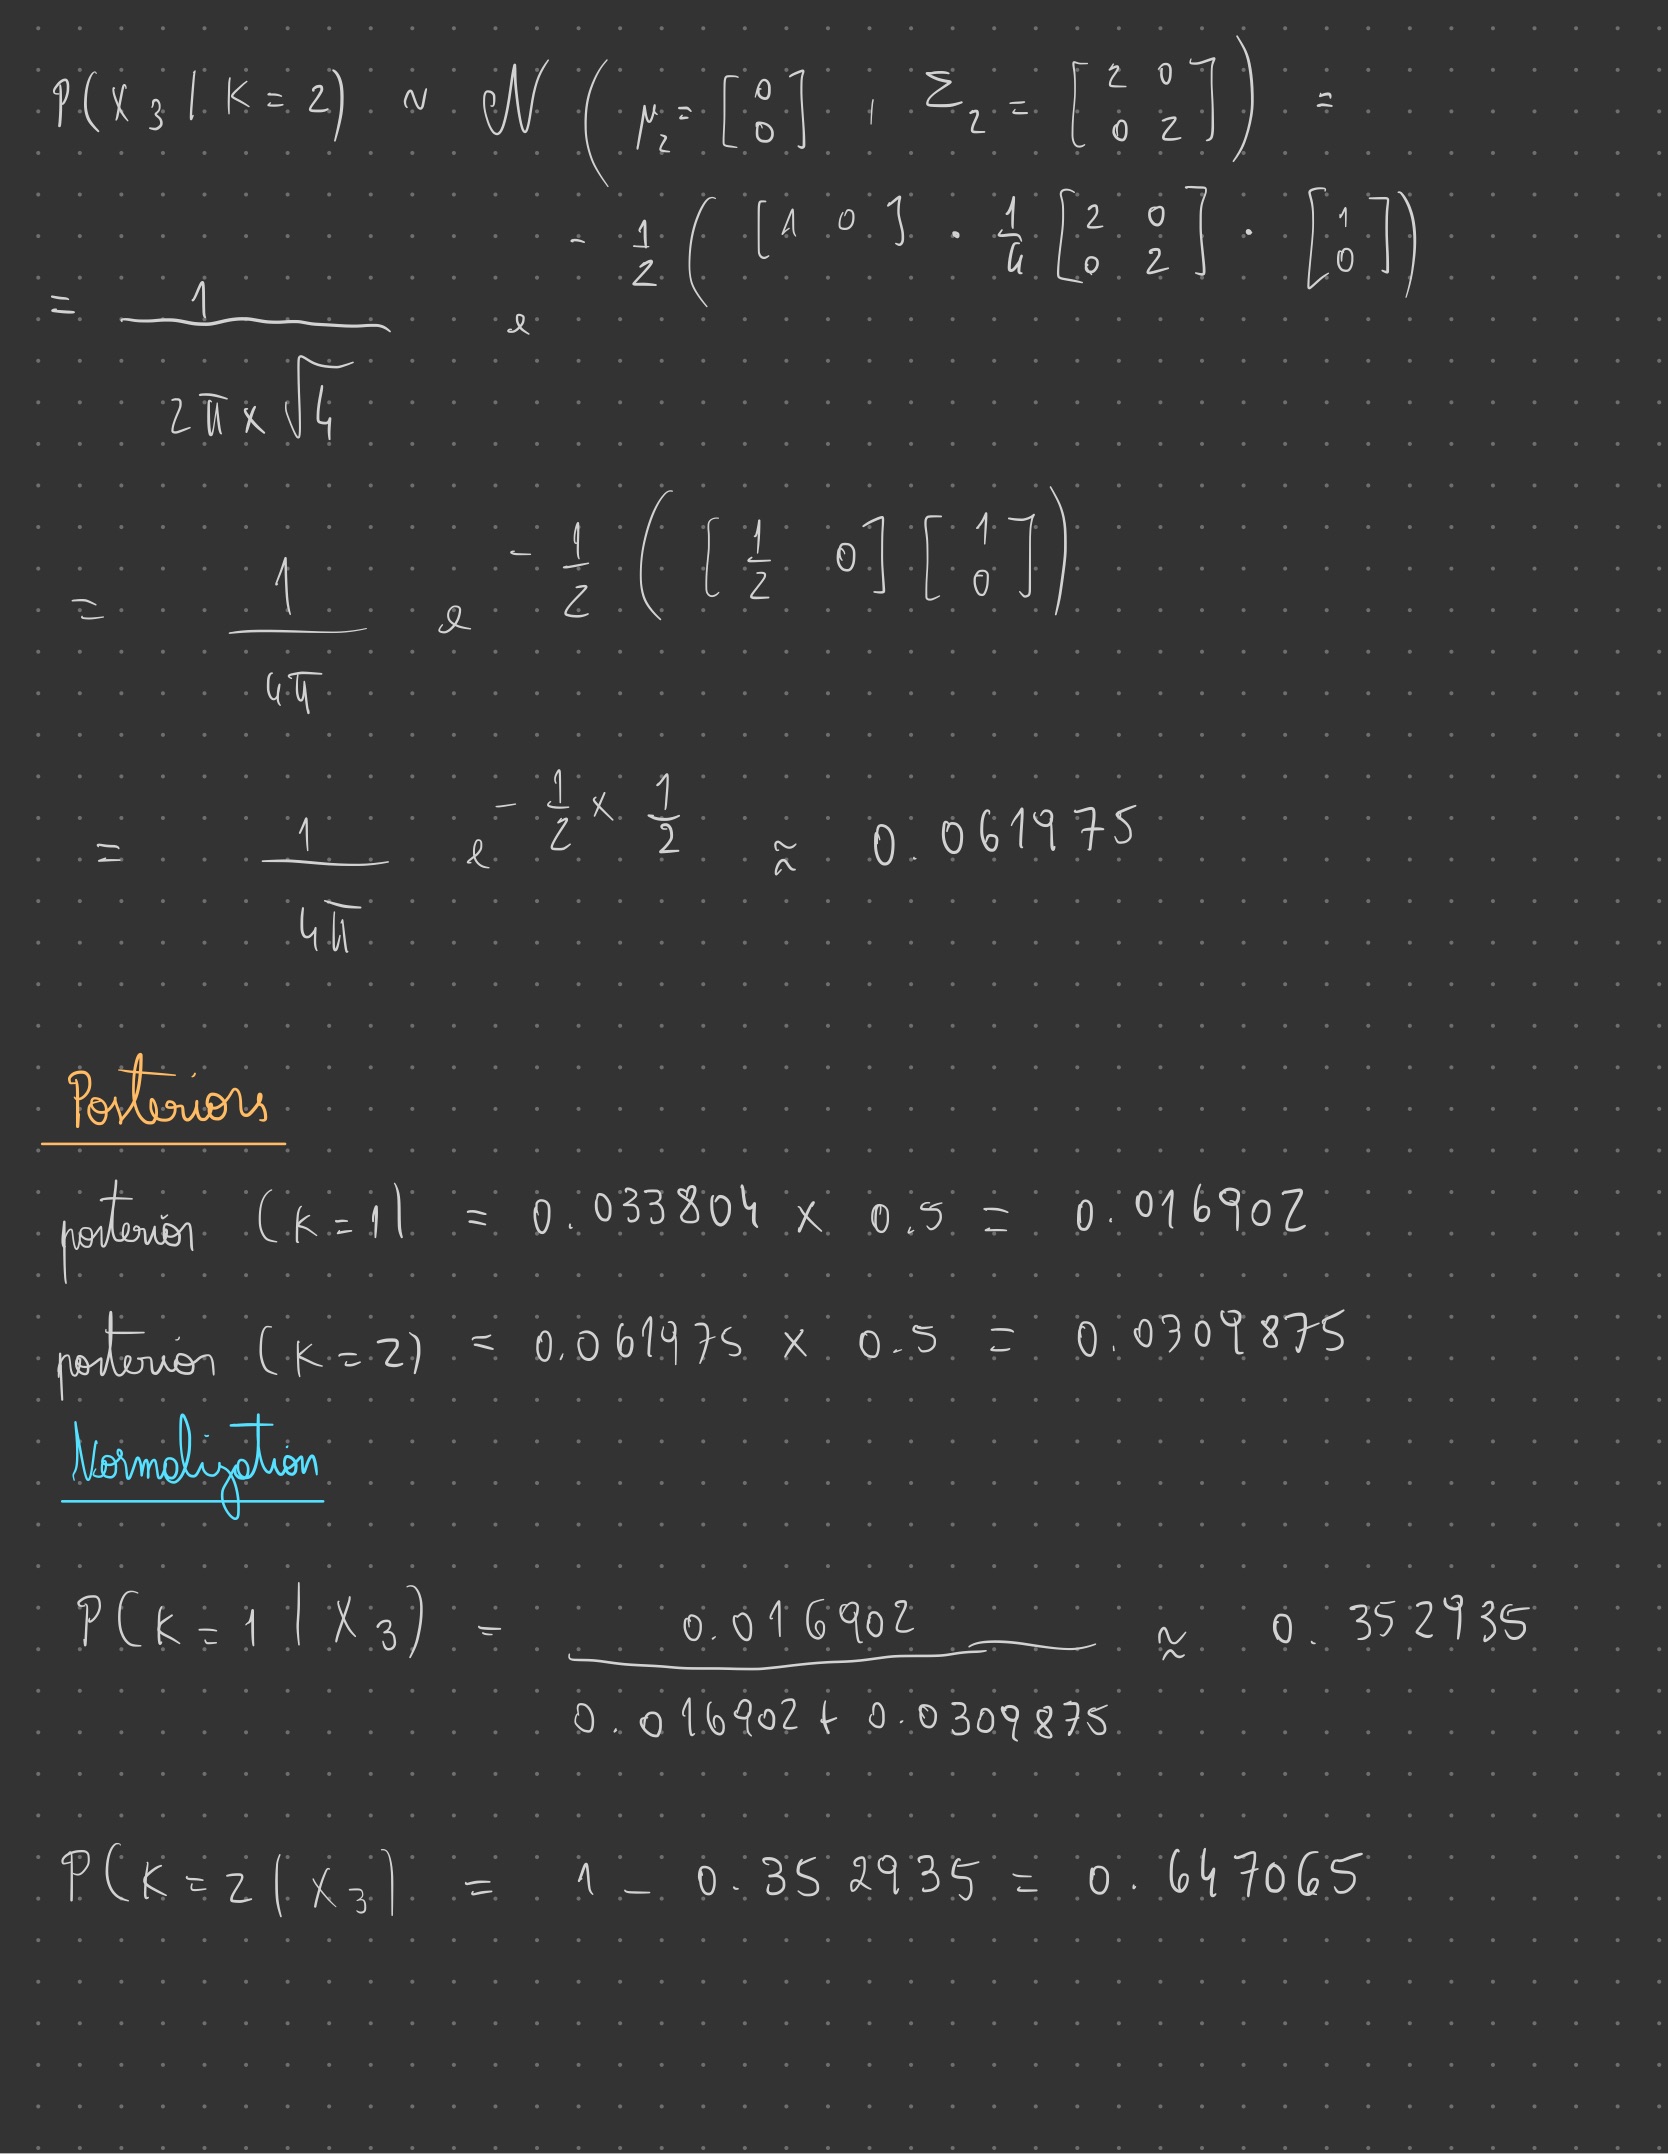 P(x₃ | K = 2) ~ N ( μ₂ = [0 0] , Σ₂ = [2 0 0 2] ) =
= 1 / (2π × √4) e^( - 1/2 ( [1 0] · 1/4 [2 0 0 2] · [1 0] ) )
= 1 / 4π e^( - 1/2 ( [1/2 0] [1 0] ) )
= 1 / 4π e^( - 1/2 × 1/2 ) ≈ 0.061975
Posteriors
posterior (K = 1) = 0.033804 × 0.5 = 0.016902
posterior (K = 2) = 0.061975 × 0.5 = 0.0309875
Normalization
P(K = 1 | x₃) = 0.016902 / (0.016902 + 0.0309875) ≈ 0.352935
P(K = 2 | x₃) = 1 - 0.352935 = 0.647065